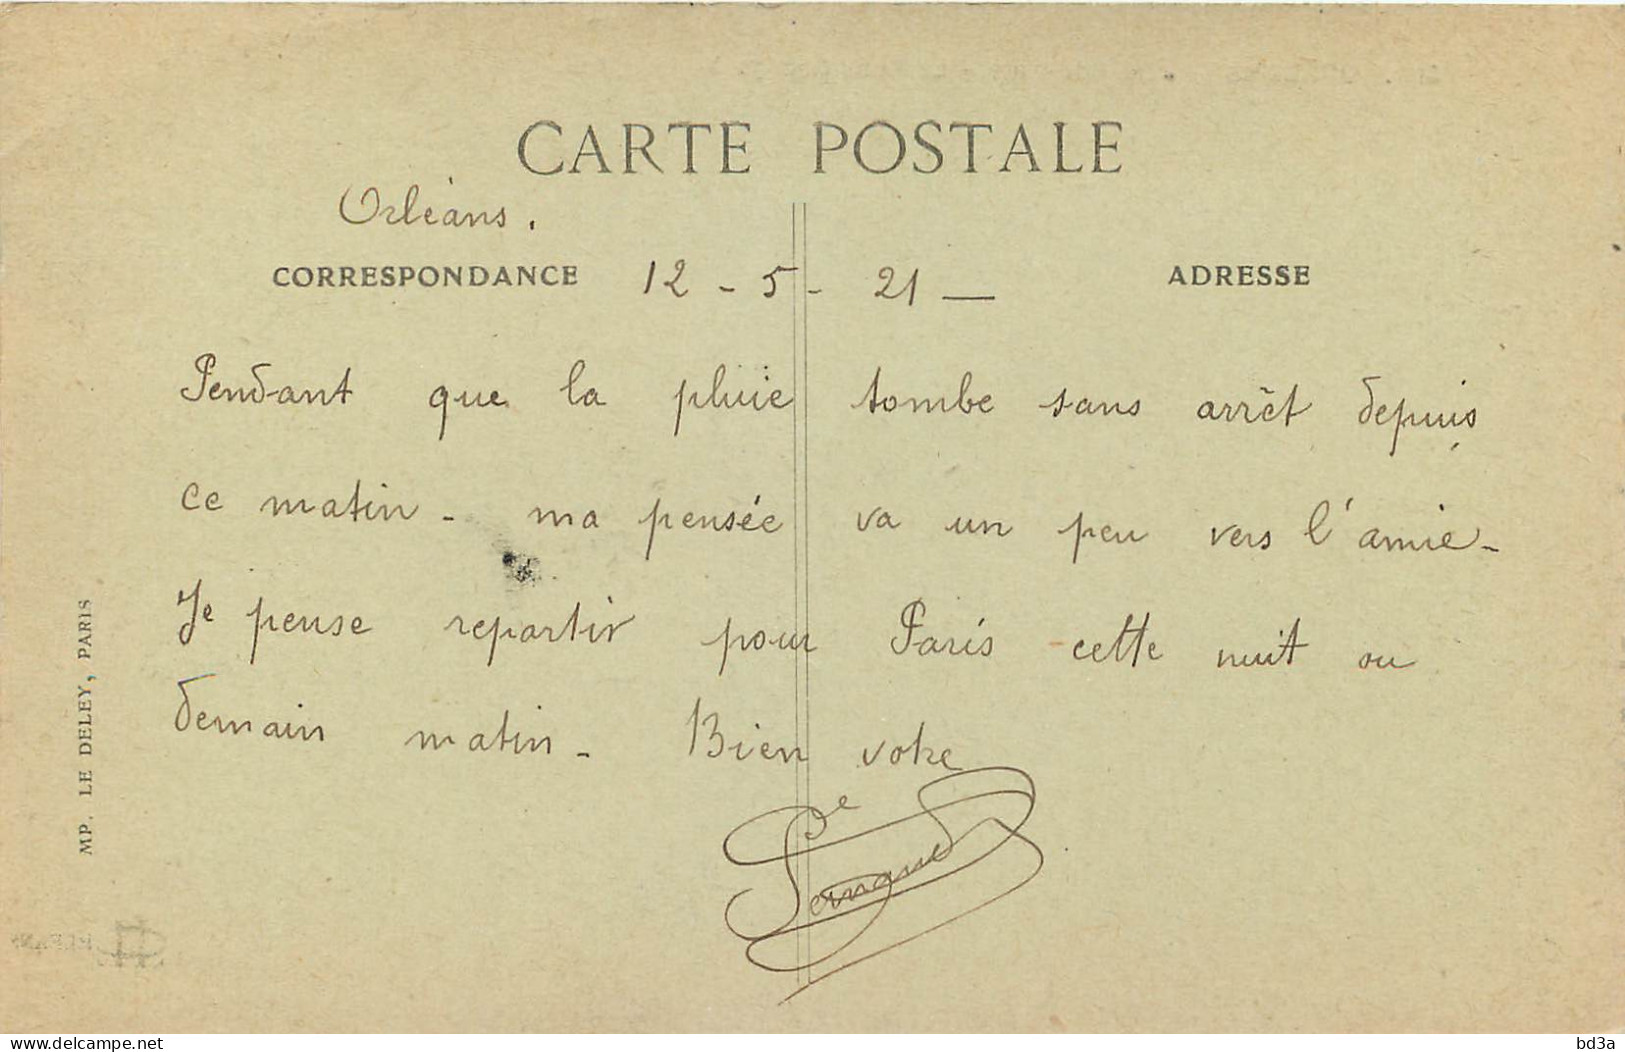 CARTE POSTALE
Orléans.
CORRESPONDANCE 12 - 5 - 21 — ADRESSE
Pendant que la pluie tombe sans arrêt depuis
ce matin - ma pensée va un peu vers l'amie -
Je pense repartir pour Paris cette nuit ou
demain matin - Bien votre
MP. LE DELEY, PARIS
delcampe.net
bd3a